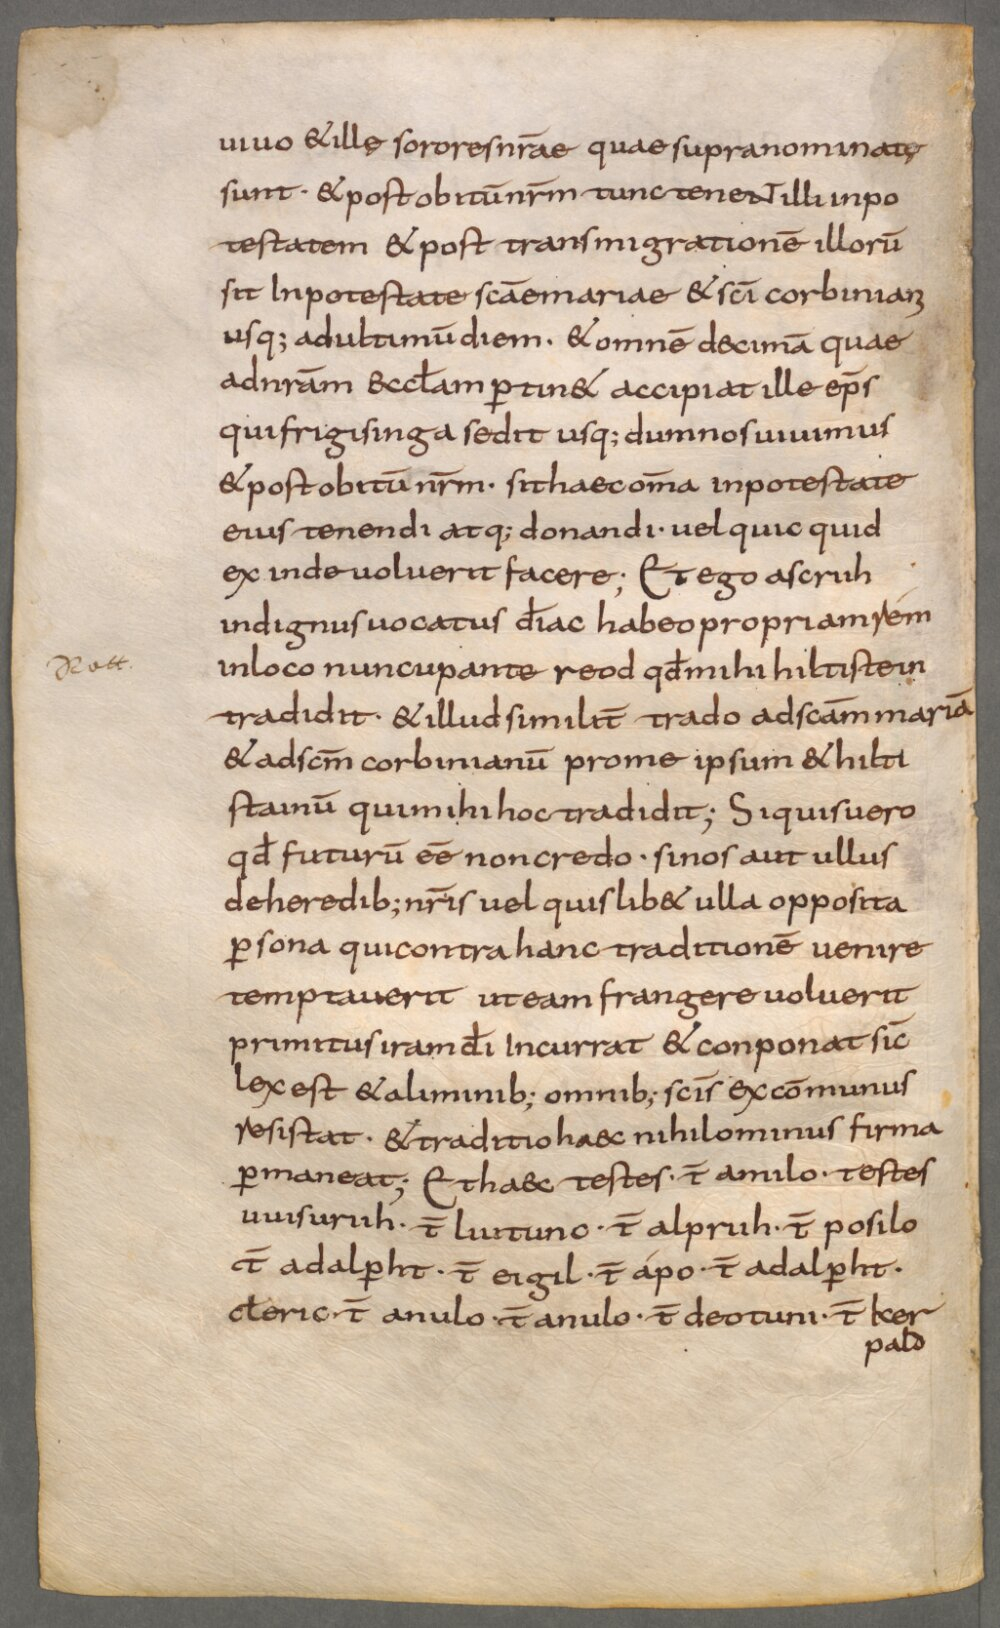 uiuo &illę sororesnr̄ae quae supranominatę
sunt · &postobitūnr̄m tunc teneNT illi inpo
testatem & post transmigrationē illorū
sit Inpotestate scāemariae & scī corbiniani
usq; adultimūdiem · &omnē d&cimā quae
adnrām &ccłam p̄tin& accipiat ille ep̄s
quifrigisinga sedit usq; dumnosuiuimus
&postobitū nr̄m · sithaecom̄a inpotestate
eius tenendi atq; donandi · uel quic quid
ex inde uoluerit facere; Et ego ascrih
indignusuocatus điac habeo propriamrem
Rott.
inloco nuncupante reod qđmihi hiltistein
tradidit · &illudsimilit̄ trado adscāmmariā
&adscm̄ corbinianū prome ipsum &hilti
stainū quimihihoctradidit; Siquisuero
qđ futurū eē noncredo · sinos aut ullus
deheredib; nr̄is uel quislib& ulla opposita
p̄sona quicontrahanc traditionē uenire
temptauerit uteamfrangereuoluerit
primitusiramdī Incurrat &conponat sic̄
lexest &aliminib; omnib; scīs excōmunus
resistat · &traditiohaec nihilominus firma
p̄maneat; Ethaec testes · t̄ amilo · testes
uuisurih · t̄ liutuno · t̄ alprih · t̄ posilo
t̄ adalp̄ht · t̄ eigil · t̄ apo · t̄ adalp̄ht ·
cłeric · t̄ anulo · t̄ anulo · t̄ deotuni · t̄ ker
pald